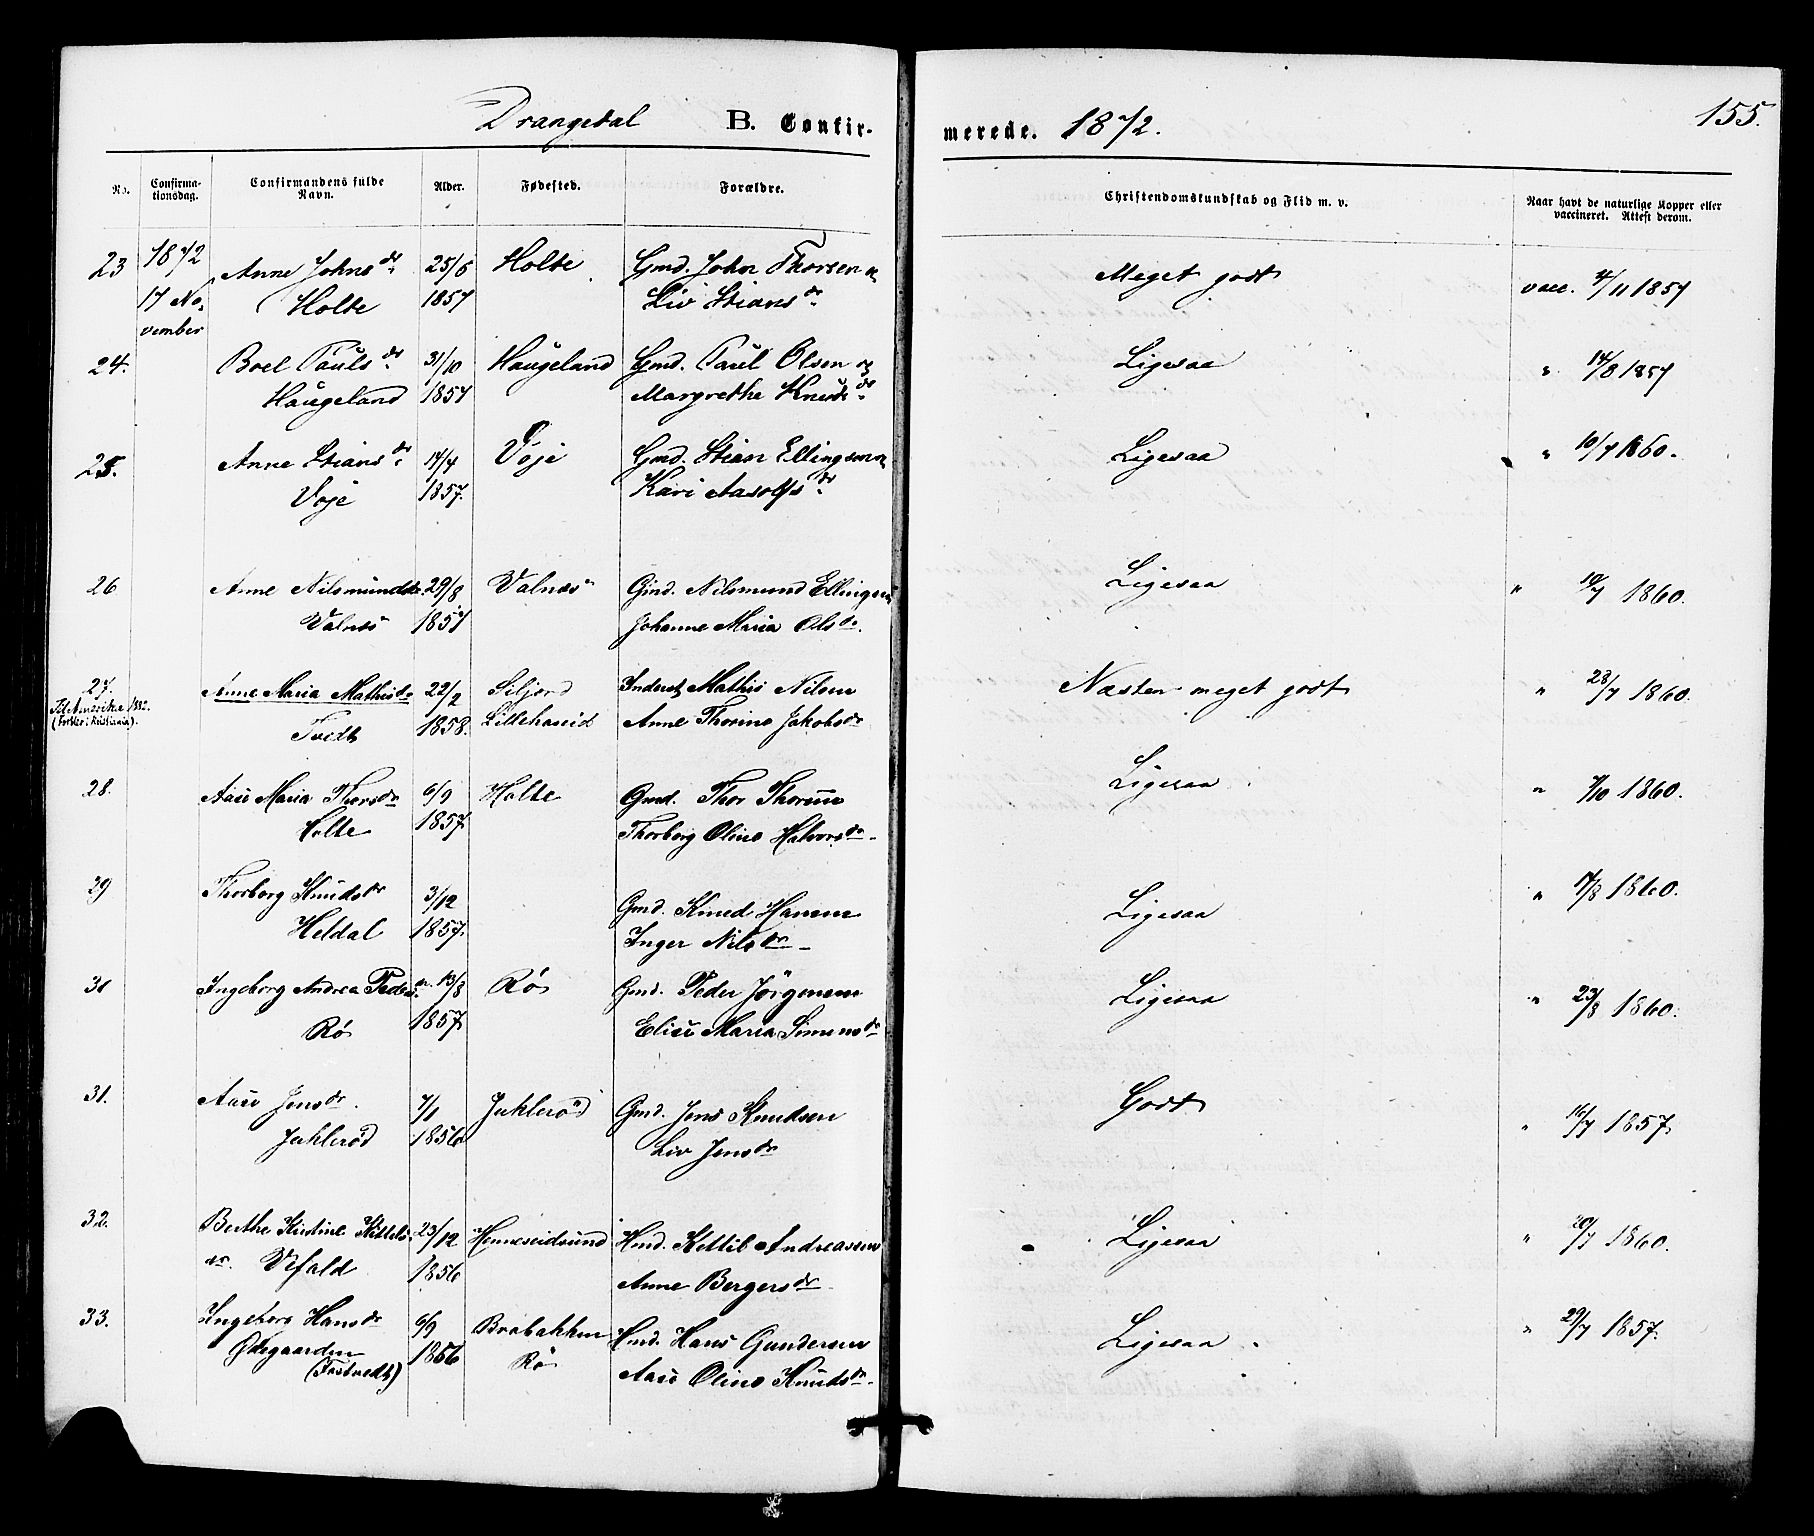 Drangedal B. Confir-
merede. 1872.
155.
No.
Confirma-
tionsdag.
Confirmandens fulde
Navn.
Alder.
Fødested.
Forældre.
Christendomskundskab og Flid m. v.
Naar havt de naturlige Kopper eller
vaccineret. Attest derom.
23 1872 Anne Johnsdr. 25/5 Holte Gmd. John Thorsen og Meget godt vacc. 4/11 1857
17 No- Holte 1857 Liv Stiansdr.
vember
24. Boel Paulsdr. 31/10 Haugeland Gmd. Paul Olsen og Ligesaa " 14/8 1857
Haugeland 1857 Margrethe Knudsdr.
25. Anne Stiansdr. 14/4 Voje Gmd. Stian Ellingsen og Ligesaa " 10/7 1860.
Voje 1857. Kari Aasolfsdr.
26 Anne Nilsmundsdr. 29/8 Valnæs Gmd. Nilsmund Ellingsen Ligesaa " 10/7 1860.
Valnæs 1857 Johanne Maria Olsdr.
27. Anne Maria Mathisdr 22/2 Siljord Inderst Mathis Nilsen Næsten meget godt " 23/7 1860.
Til Amerika 1882.
(Forkler i Kristiania).
Tvedt 1858. Littehaveid Anne Thorine Jakobsdr
28. Aase Maria Thorsdr 6/9 Holte Gmd. Thor Thorsen Ligesaa " 7/10 1860.
Holte 1857. Thorborg Oline Halvorsdr.
29 Thorborg Knudsdr 3/12 Gmd. Knud Hansen Ligesaa " 7/8 1860.
Heldal 1857. Inger Nilsdr.
31 Ingeborg Andrea Pedersdr. 13/8 Rø Gmd. Peder Jörgensen Ligesaa " 23/8 1860.
Rø 1857. Elise Maria Simonsdr
31. Aase Jensdr. 7/1 Juklerød Gmd. Jens Knudsen Godt " 16/7 1857.
Juklerød 1856 Liv Jensdr
32. Berthe Kirstine Kittels- 23/12 Henneseidsund Hmd. Kittil Andreassen Ligesaa " 20/7 1860.
dr. Vefald 1856 Anne Bergersdr
33. Ingeborg Hansdr 6/9 Brobakken Hmd. Hans Gundersen Ligesaa " 29/7 1857.
Ødegaarden 1856 Rø Aase Oline Knudsdr.
(Tostvedt)